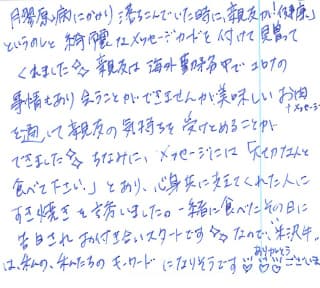 月膠原病にかかり落ちこんでいた時に、親友が「健康」
というのしと綺麗なメッセージカードを付けて見舞って
くれました☆ 親友は海外 中でコロナの
事情もあり会うことができませんが、美味しいお肉
+メッセージ
を通して親友の気持ちを受けとめることが
できました☆ ちなみに、メッセージには「大切な人と
食べて下さい」とあり、心身共に支えてくれた人に
すき焼きを 一緒に食べたその日に
告白されお付き合いスタートです☆ なので、米沢牛
は、私の、私たちのキーワードになりそうです♡♡♡
ありがとう
ございました